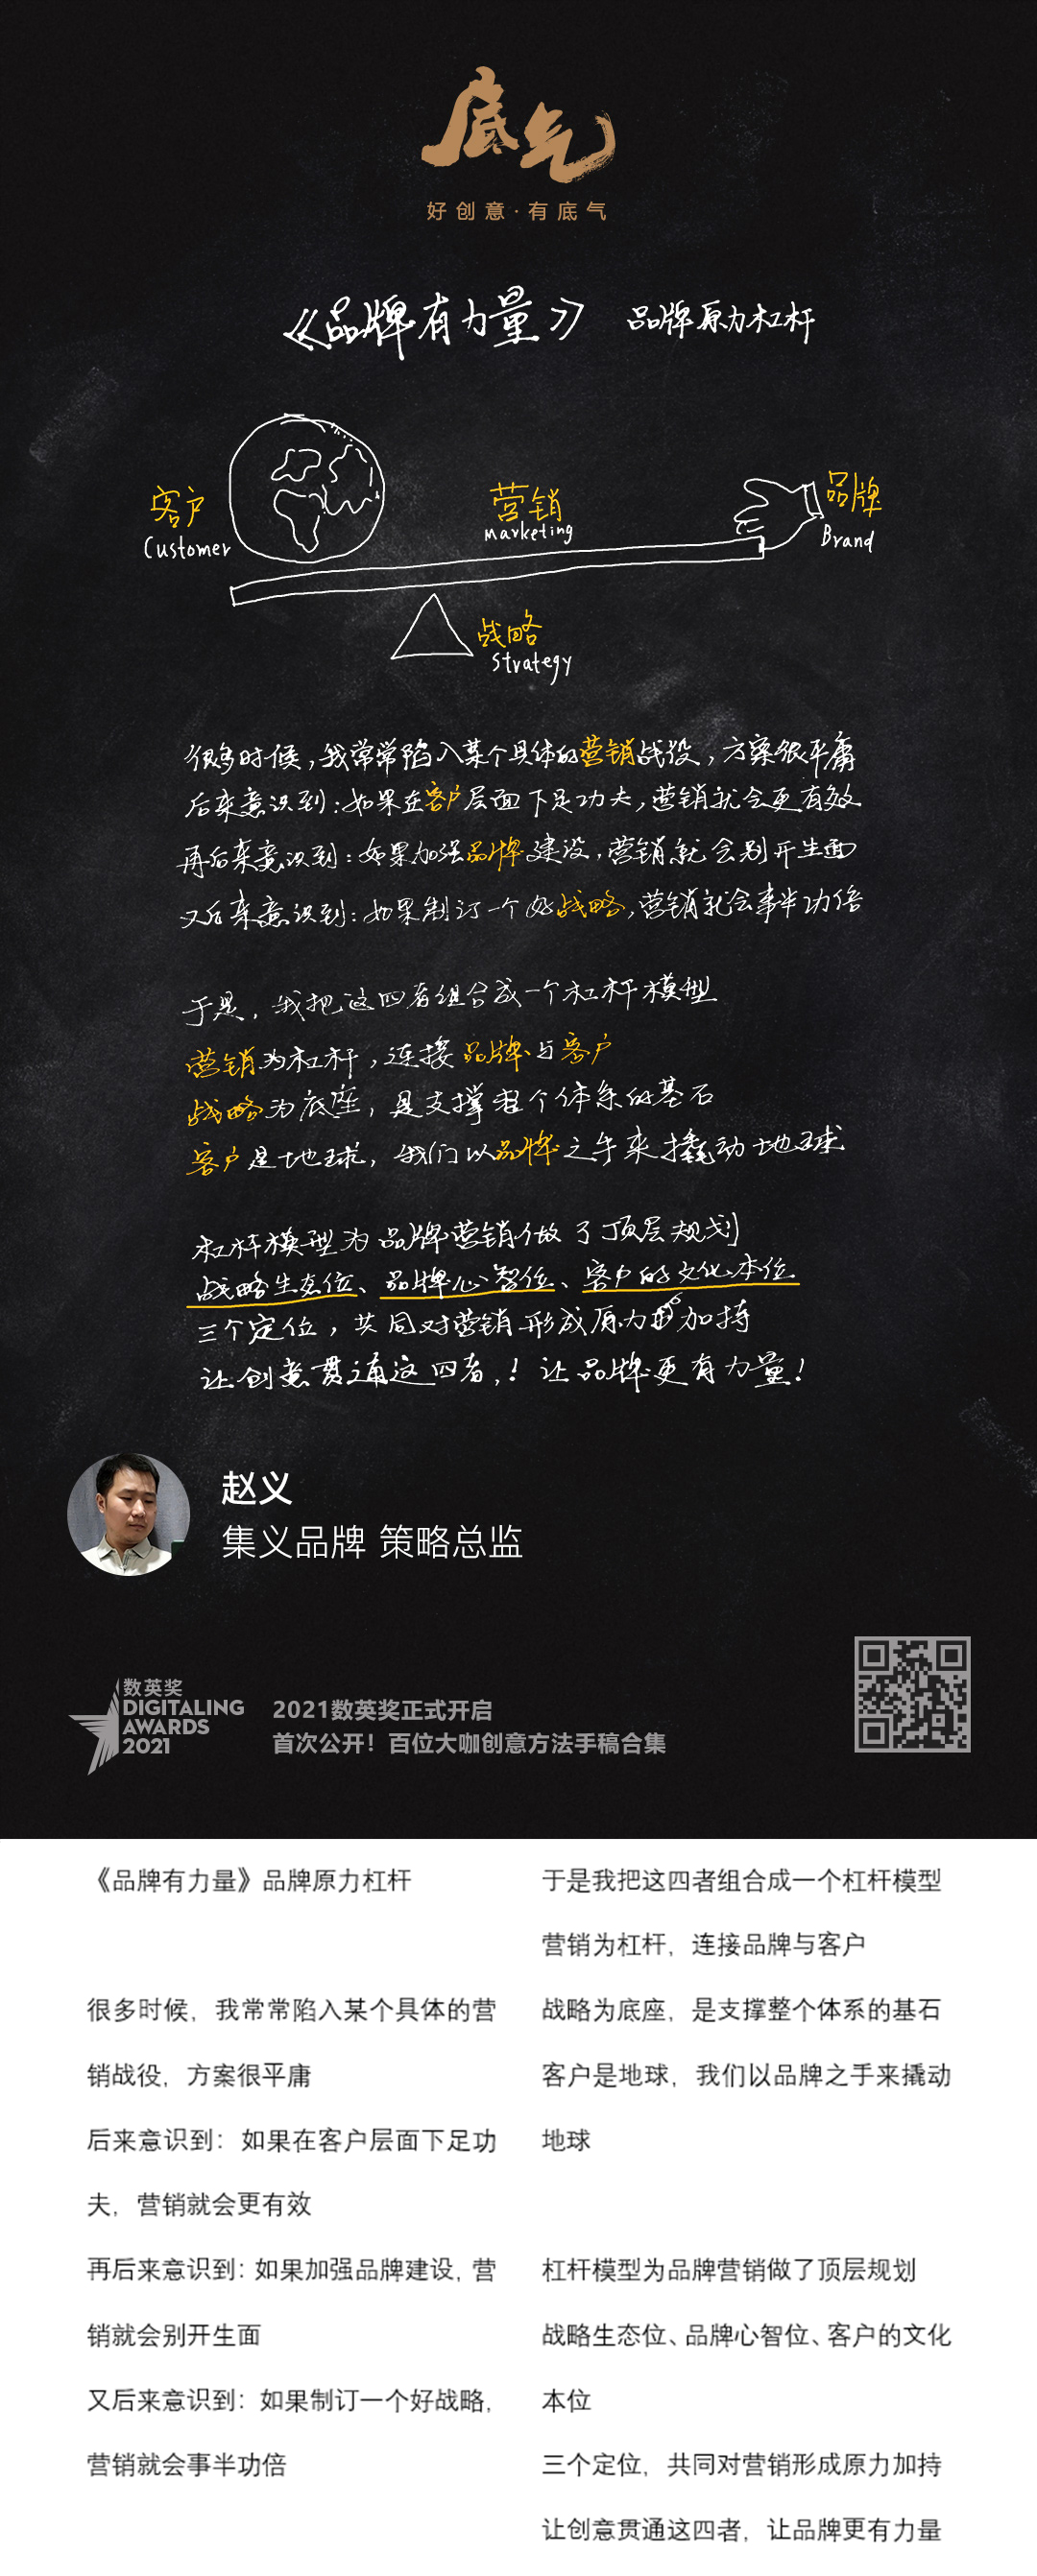 底气
好创意·有底气
《品牌有力量》 品牌原力杠杆
客户
Customer
营销
Marketing
品牌
Brand
战略
Strategy
很多时候,我常常陷入某个具体的营销战役,方案很平庸
后来意识到:如果在客户层面下足功夫,营销就会更有效
再后来意识到:如果加强品牌建设,营销就会别开生面
又后来意识到:如果制订一个好战略,营销就会事半功倍
于是,我把这四者组合成一个杠杆模型
营销为杠杆,连接品牌与客户
战略为底座,是支撑整个体系的基石
客户是地球,我们以品牌之手来撬动地球
杠杆模型为品牌营销做了顶层规划
战略生态位、品牌心智位、客户的文化本位
三个定位,共同对营销形成原力加持
让创意贯通这四者,!让品牌更有力量!
赵义
集义品牌 策略总监
数英奖
DIGITALING
AWARDS
2021
2021数英奖正式开启
首次公开!百位大咖创意方法手稿合集
《品牌有力量》品牌原力杠杆
很多时候,我常常陷入某个具体的营
销战役,方案很平庸
后来意识到:如果在客户层面下足功
夫,营销就会更有效
再后来意识到:如果加强品牌建设,营
销就会别开生面
又后来意识到:如果制订一个好战略,
营销就会事半功倍
于是我把这四者组合成一个杠杆模型
营销为杠杆,连接品牌与客户
战略为底座,是支撑整个体系的基石
客户是地球,我们以品牌之手来撬动
地球
杠杆模型为品牌营销做了顶层规划
战略生态位、品牌心智位、客户的文化
本位
三个定位,共同对营销形成原力加持
让创意贯通这四者,让品牌更有力量